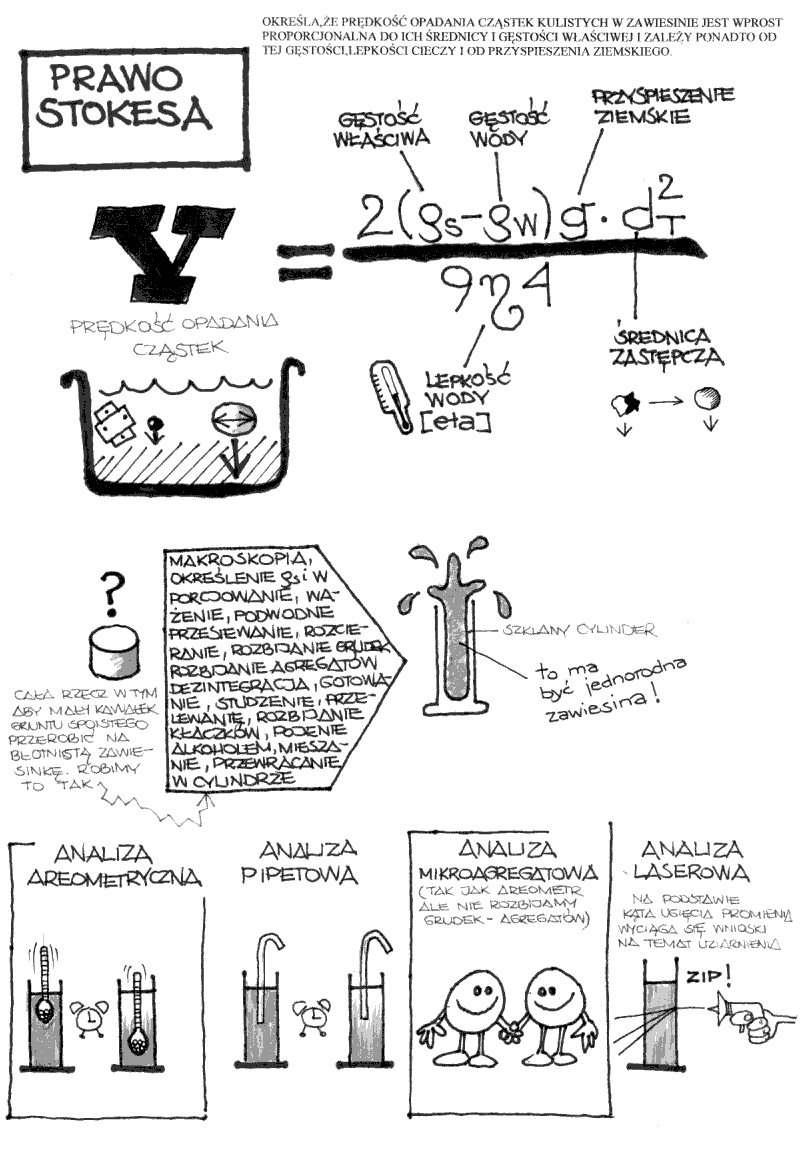 OKREŚLA,ŻE PRĘDKOŚĆ OPADANIA CZĄSTEK KULISTYCH W ZAWIESINIE JEST WPROST
PROPORCJONALNA DO ICH ŚREDNICY I GĘSTOŚCI WŁAŚCIWEJ I ZALEŻY PONADTO OD
TEJ GĘSTOŚCI,LEPKOŚCI CIECZY I OD PRZYSPIESZENIA ZIEMSKIEGO.
PRAWO
STOKESA
GĘSTOŚĆ
WŁAŚCIWA
GĘSTOŚĆ
WODY
PRZYSPIESZENIE
ZIEMSKIE
V = 2(ρs-ρw)g·d²T
9η4
PRĘDKOŚĆ OPADANIA
CZĄSTEK
LEPKOŚĆ
WODY
[eta]
ŚREDNICA
ZASTĘPCZA
?
CAŁA RZECZ W TYM
ABY MAŁY KAWAŁEK
GRUNTU SPOISTEGO
PRZEROBIĆ NA
BŁOTNISTĄ ZAWIE-
SINKĘ. ROBIMY
TO TAK
MAKROSKOPIA,
OKREŚLENIE ρs i W
PORCJOWANIE, WA-
ŻENIE, PODWODNE
PRZESIEWANIE, ROZCIE-
RANIE, ROZBIJANIE GRUDEK
ROZBIJANIE AGREGATÓW
DEZINTEGRACJA, GOTOWA-
NIE, STUDZENIE, PRZE-
LEWANIE, ROZBIJANIE
KŁACZKÓW, POJENIE
ALKOHOLEM, MIESZA-
NIE, PRZEWRACANIE
W CYLINDRZE
SZKLANY CYLINDER
to ma
być jednorodna
zawiesina!
ANALIZA
AREOMETRYCZNA
ANALIZA
PIPETOWA
ANALIZA
MIKROAGREGATOWA
(TAK JAK AREOMETR
ALE NIE ROZBIJAMY
GRUDEK - AGREGATÓW)
ANALIZA
LASEROWA
NA PODSTAWIE
KĄTA UGIĘCIA PROMIENIA
WYCIĄGA SIĘ WNIOSKI
NA TEMAT UZIARNIENIA
ZIP!